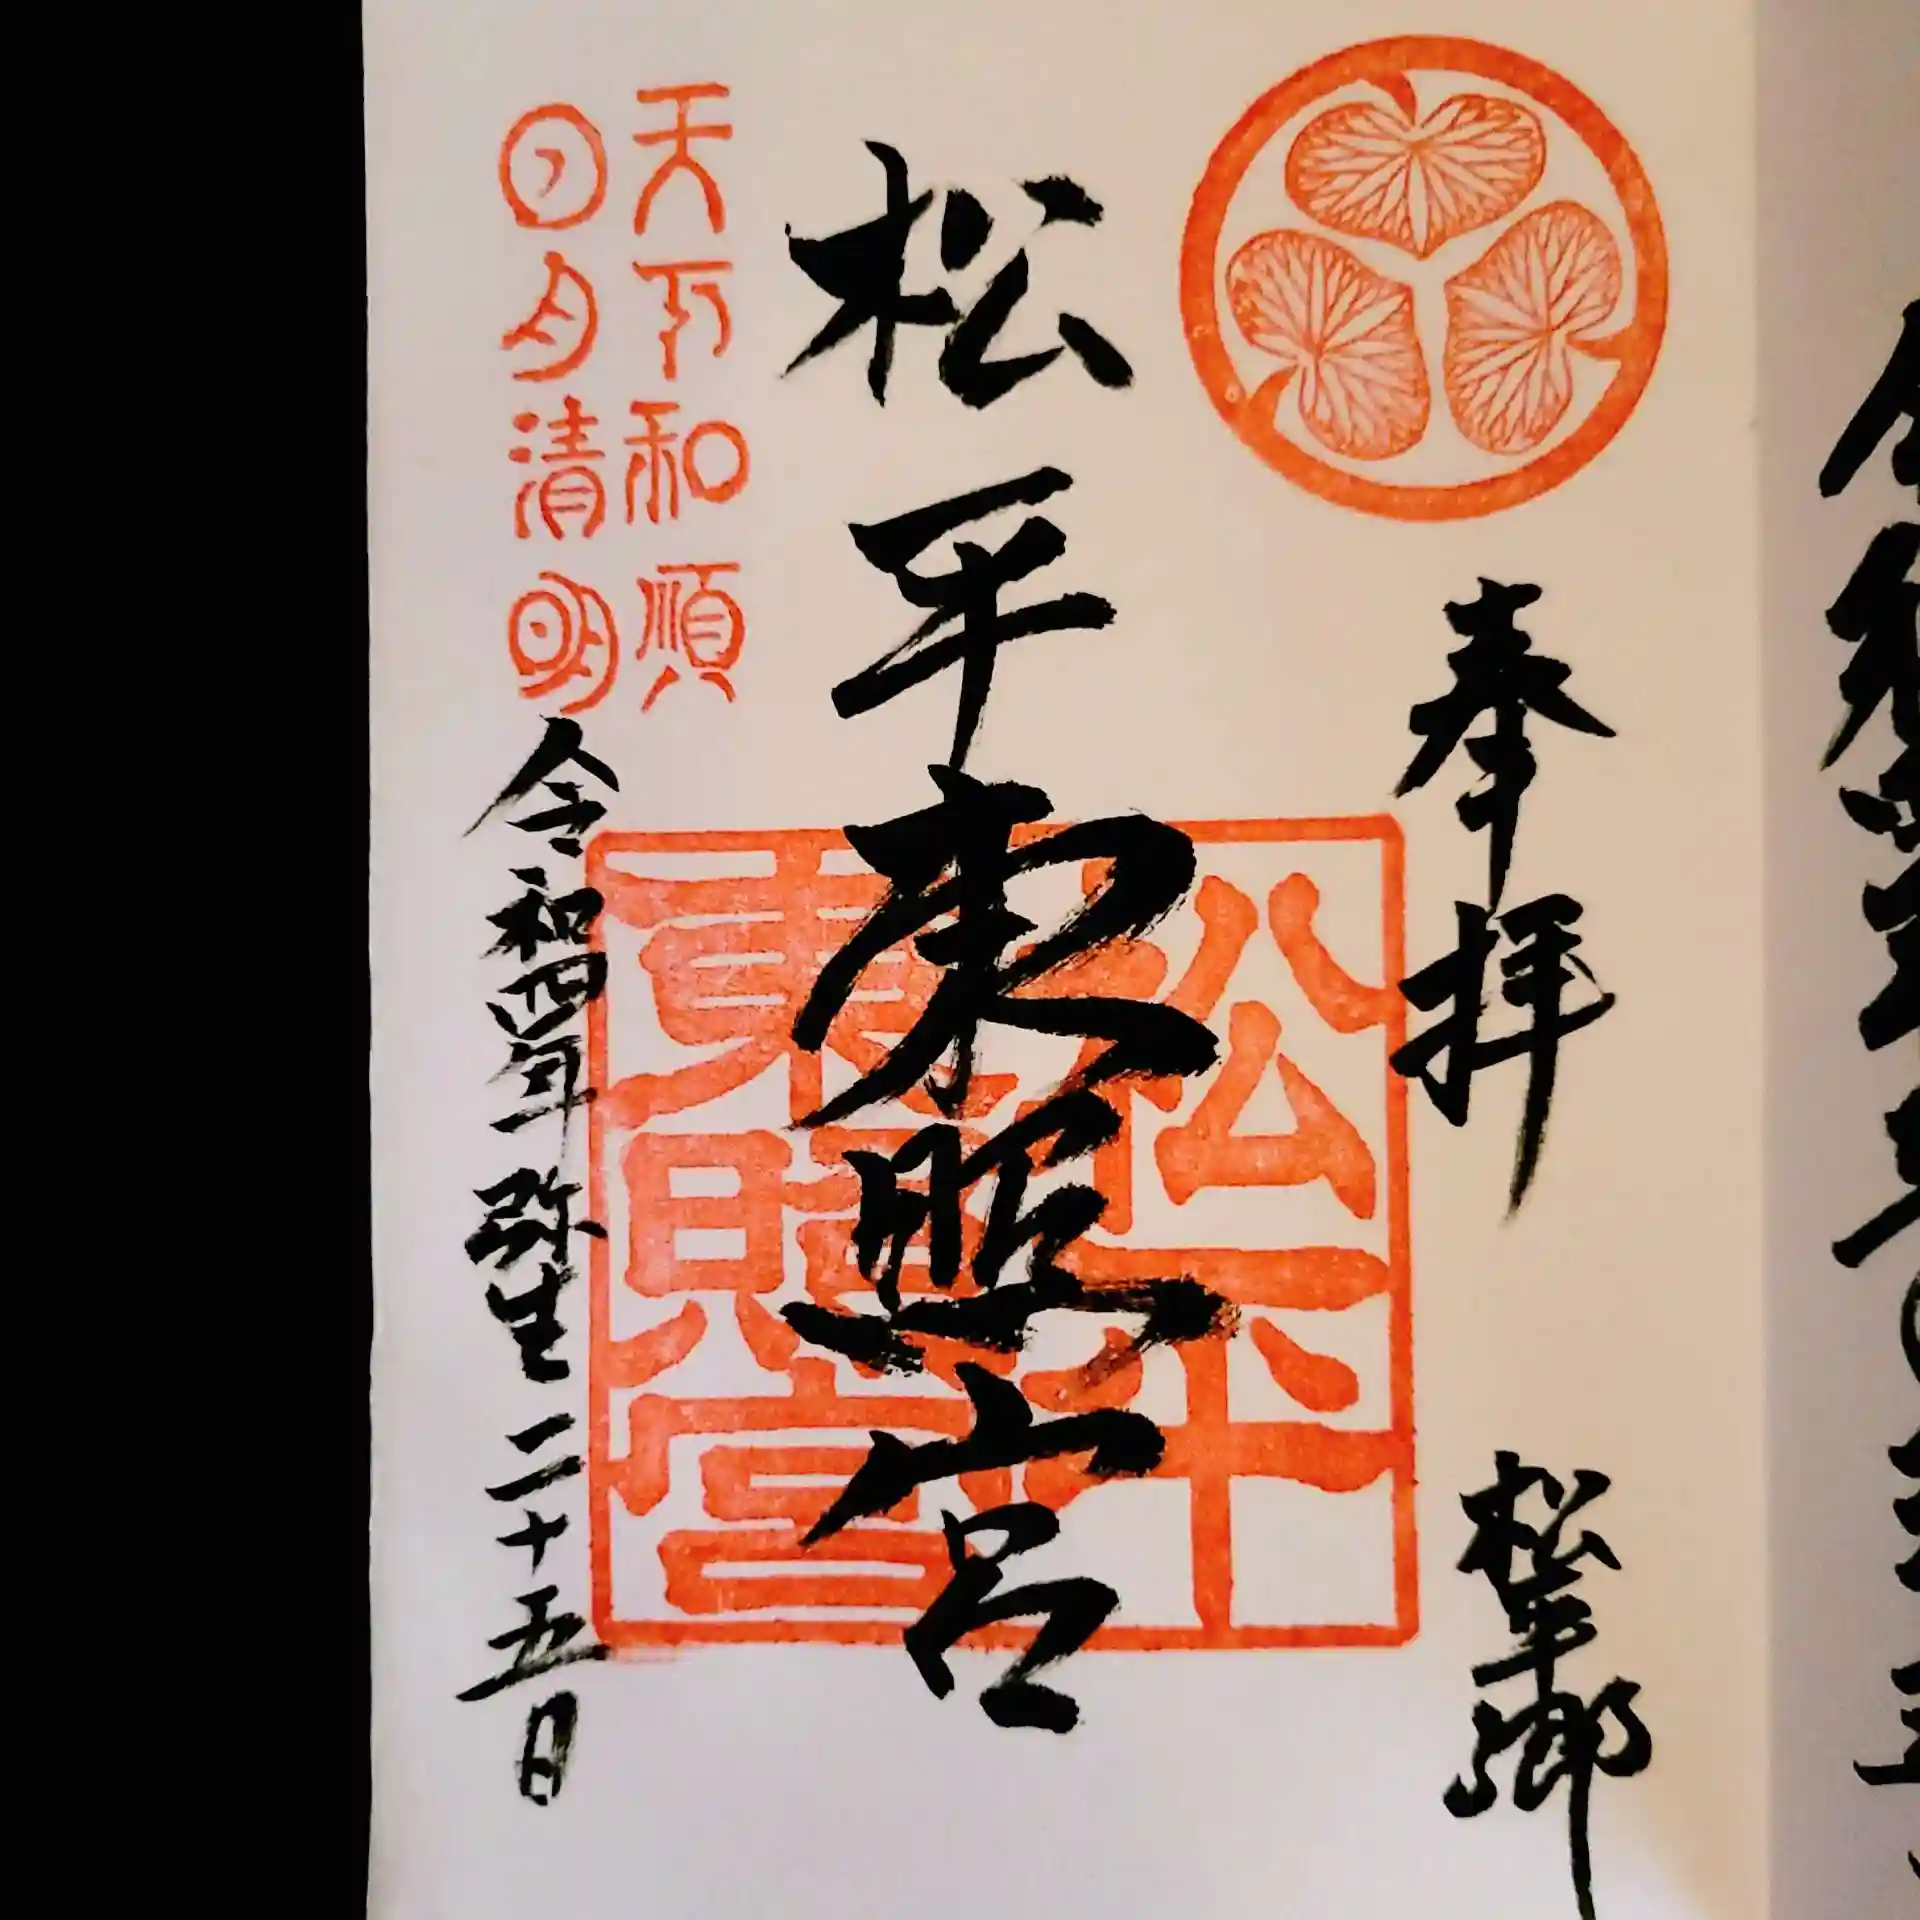 奉拝
松平郷
松平東照宮
松平
東照宮
天下和順
日月清明
令和四年弥生二十五日